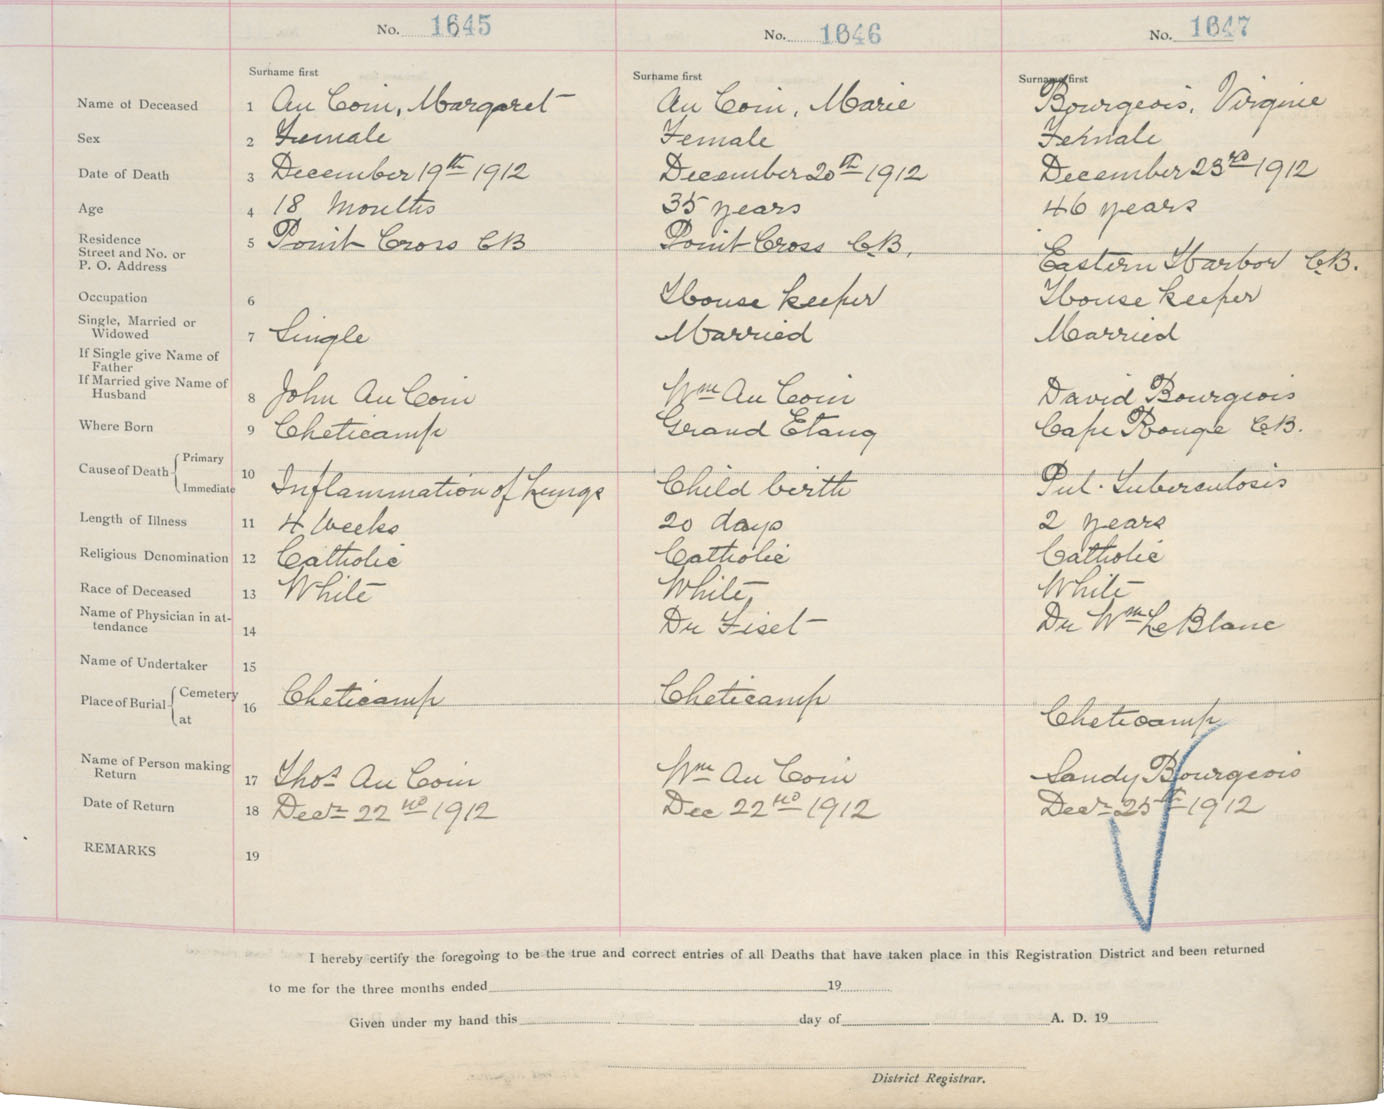 No. 1645 No. 1646 No. 1647
Surname first Surname first Surname first
Name of Deceased 1 Au Coin, Margaret Au Coin, Marie Bourgeois, Virginie
Sex 2 Female Female Female
Date of Death 3 December 19th 1912 December 20th 1912 December 23rd 1912
Age 4 18 Months 35 years 46 years
Residence
Street and No. or
P. O. Address
5 Point Cross CB Point Cross C.B. Eastern Harbor C.B.
Occupation 6 House keeper House keeper
Single, Married or
Widowed 7 Single Married Married
If Single give Name of
Father
If Married give Name of
Husband 8 John Au Coin Wm Au Coin David Bourgeois
Where Born 9 Cheticamp Grand Etang Cape Rouge C.B.
Cause of Death Primary
Immediate
10 Inflammation of Lungs Child birth Pul. Tuberculosis
Length of Illness 11 4 Weeks 20 days 2 years
Religious Denomination 12 Catholic Catholic Catholic
Race of Deceased 13 White White White
Name of Physician in at-
tendance 14 Dr Fiset Dr Wm LeBlanc
Name of Undertaker 15
Place of Burial Cemetery
at
16 Cheticamp Cheticamp Cheticamp
Name of Person making
Return 17 Thos Au Coin Wm Au Coin Sandy Bourgeois
Date of Return 18 Decr 22nd 1912 Dec 22nd 1912 Decr 25th 1912
REMARKS 19
I hereby certify the foregoing to be the true and correct entries of all Deaths that have taken place in this Registration District and been returned
to me for the three months ended 19
Given under my hand this day of A. D. 19
District Registrar.